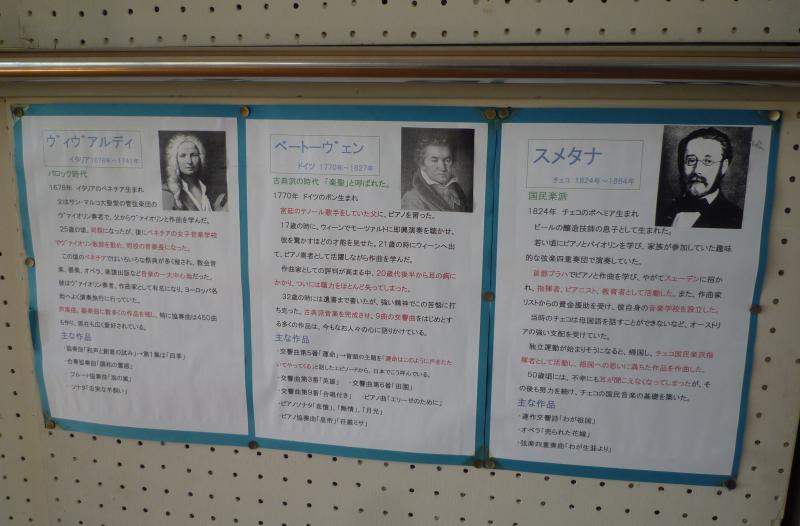 ヴィヴァルディ
イタリア1678年～1741年
バロック時代
1678年 イタリアのベネチア生まれ
父はサン・マルコ大聖堂の管弦楽団の
ヴァイオリン奏者で、父からヴァイオリンと作曲を学んだ。
25歳の頃、司祭になったが、後にベネチアの女子音楽学校
でヴァイオリン教師を勤め、同校の音楽長になった。
この頃のベネチアではいろいろな祭典が多く催され、教会音
楽、器楽、オペラ、楽譜出版など音楽の一大中心地だった。
彼はヴァイオリン奏者、作曲家として有名になり、ヨーロッパ各
地へよく演奏旅行に行っていた。
声楽曲、器楽曲に数多くの作品を残し、特に協奏曲は450曲
も作り、現在も広く愛好されている。
主な作品
・協奏曲「和声と創意の試み」→第1集は「四季」
・合奏協奏曲「調和の霊感」
・フルート協奏曲「海の嵐」
・ソナタ「忠実な羊飼い」
ベートーヴェン
ドイツ 1770年～1827年
古典派の時代 「楽聖」と呼ばれた。
1770年 ドイツのボン生まれ
宮廷のテノール歌手をしていた父に、ピアノを習った。
17歳の時に、ウィーンでモーツァルトに即興演奏を聴かせ、
彼を驚かすほどの才能を見せた。21歳の時にウィーンへ出
て、ピアノ奏者として活躍しながら作曲を学んだ。
作曲家としての評判が高まる中、20歳代後半から耳の病に
かかり、ついには聴力をほとんど失ってしまった。
32歳の時には遺書まで書いたが、強い精神でこの苦悩に打
ち克った。古典派音楽を完成させ、9曲の交響曲をはじめとす
る多くの作品は、今もなお人々の心に語りかけている。
主な作品
・交響曲第5番「運命」→冒頭の主題を「運命はこのように戸をたた
いてやってくる」と話したエピソードから、日本でこう呼んでいる。
・交響曲第3番「英雄」 ・交響曲第6番「田園」
・交響曲第9番「合唱付き」 ・ピアノ曲「エリーゼのために」
・ピアノソナタ「悲愴」、「熱情」、「月光」
・ピアノ協奏曲「皇帝」「荘厳ミサ」
スメタナ
チェコ 1824年～1884年
国民楽派
1824年 チェコのボヘミア生まれ
ビールの醸造技師の息子として生まれた。
若い頃にピアノとバイオリンを学び、家族が参加していた趣味
的な弦楽四重奏団で演奏していた。
首都プラハでピアノと作曲を学び、やがてスェーデンに招か
れ、指揮者、ピアニスト、教育者として活動した。また、作曲家
リストからの資金援助を受け、彼自身の音楽学校を設立した。
当時のチェコは母国語を話すことができないなど、オーストリ
アの強い支配を受けていた。
独立運動が始まりそうになると、帰国し、チェコ国民楽派指
揮者として活動し、祖国への思いに満ちた作品を作曲した。
50歳頃には、不幸にも耳が聞こえなくなってしまったが、そ
の後も努力を続け、チェコの国民音楽の基礎を築いた。
主な作品
・連作交響詩「わが祖国」
・オペラ「売られた花嫁」
・弦楽四重奏曲「わが生涯より」